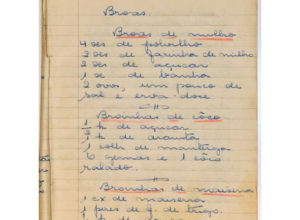 Broas.
Broas de milho
4 xes de polvilho
3 xes de farinha de milho
2 xes de açucar
1 xe de banha
2 ovos, um pouco de
sal e erva doce.
Broinhas de côco
1 k de açucar
1/2 k de araruta
1 colh de manteiga
6 gemas e 1 côco
ralado.
Broinhas de maisena
1 cx de maisena
1 pires de f. de trigo.